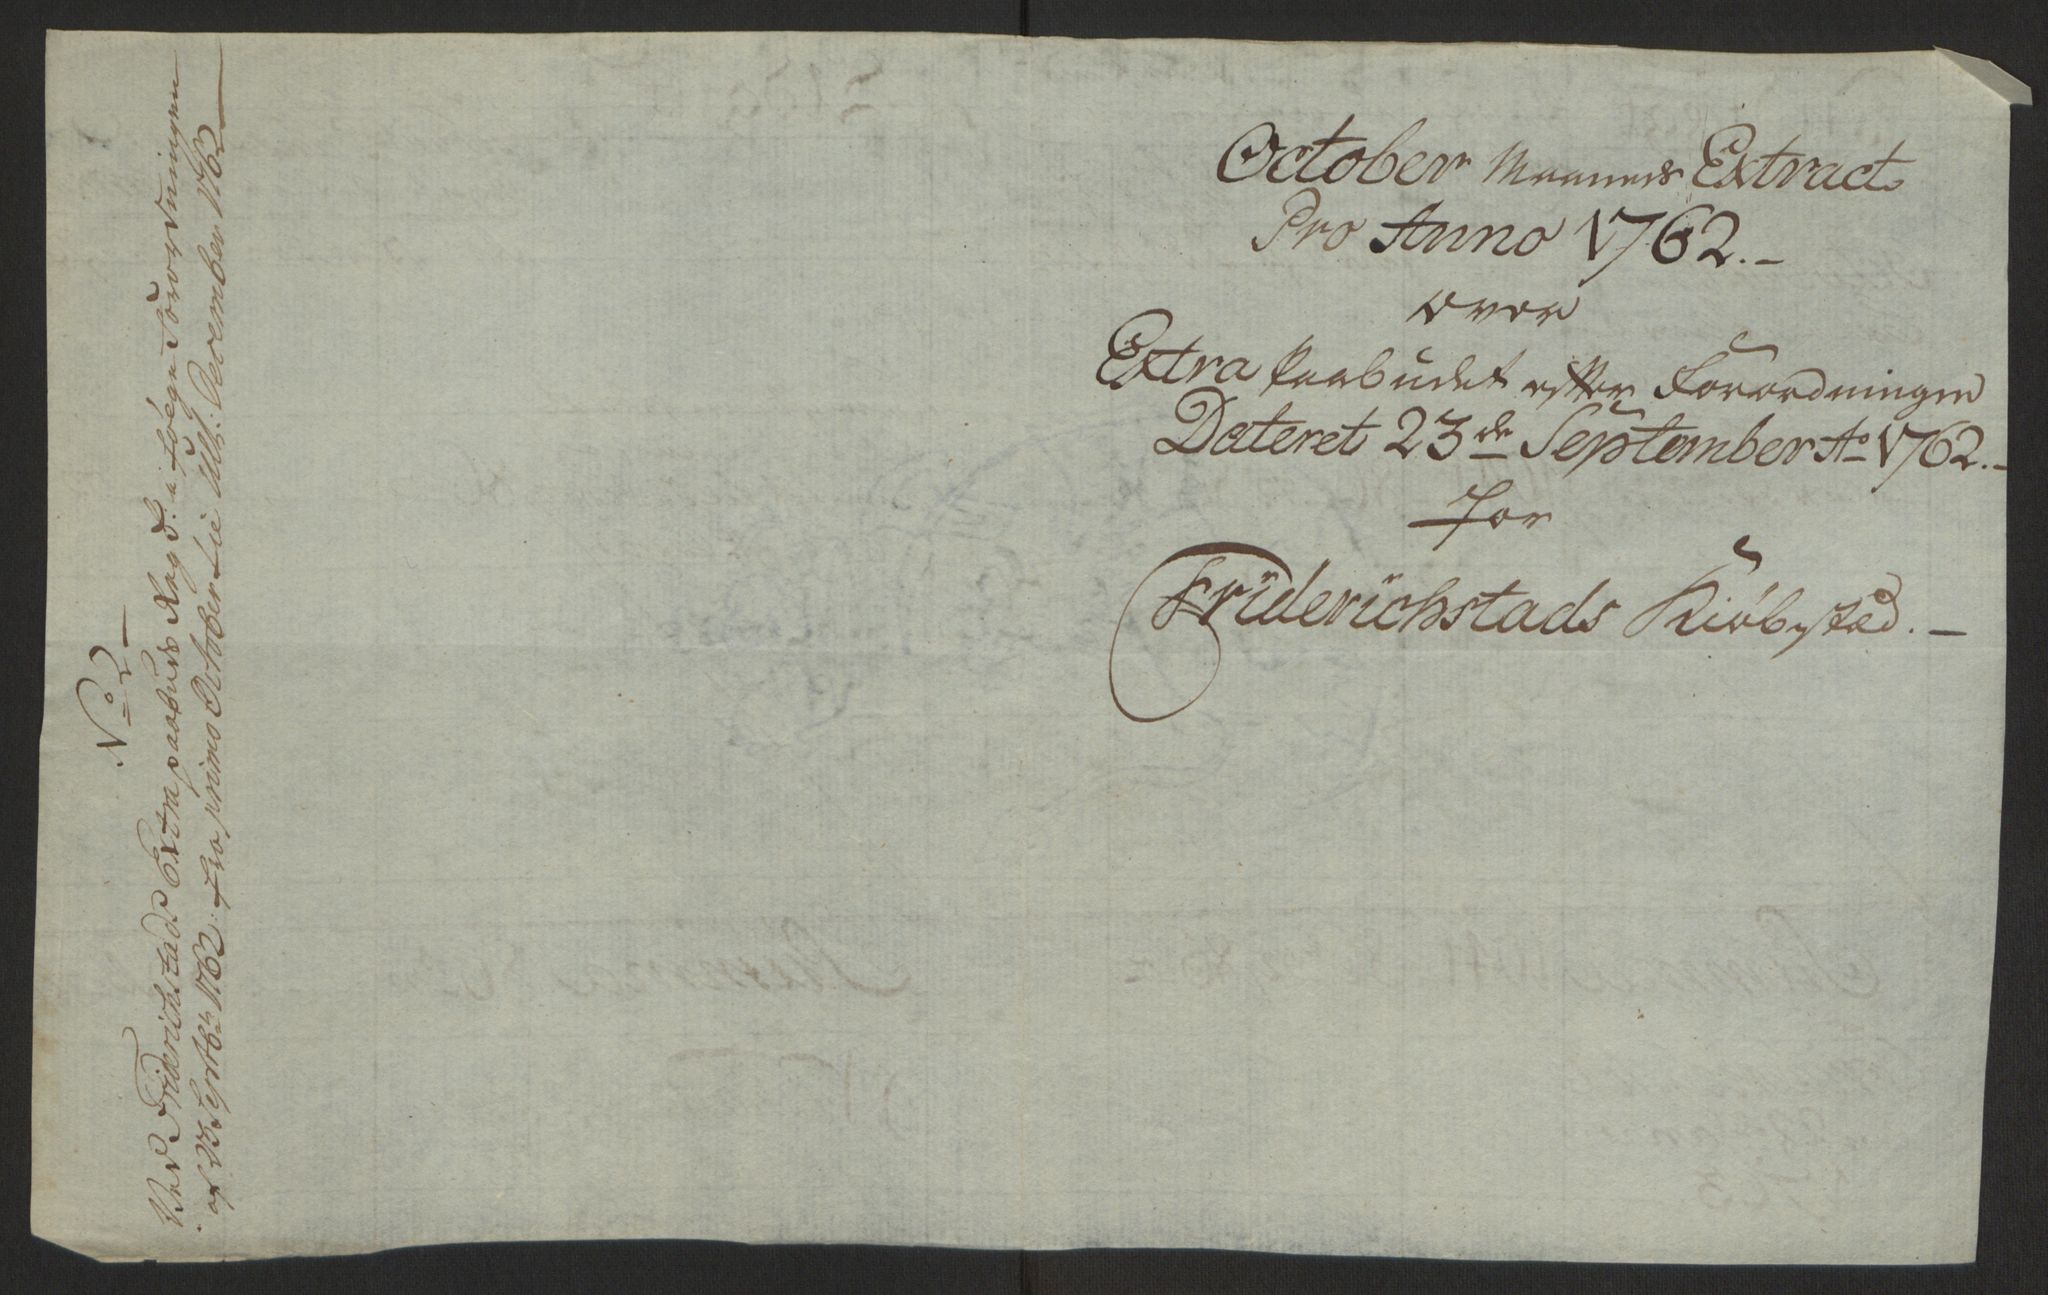 October Maaneds Extract
Pro Anno 1762.-
over
Extra Paabudet efter Forordningen
Dateret 23de September Ao 1762.-
For
Friderichstads Kiøbsted.-
No 2
Ved Friderichstads Extra paabuds Regsk: ifølge Forordningen
af 23 Septbr 1762. fra primo October til Ult: December 1762